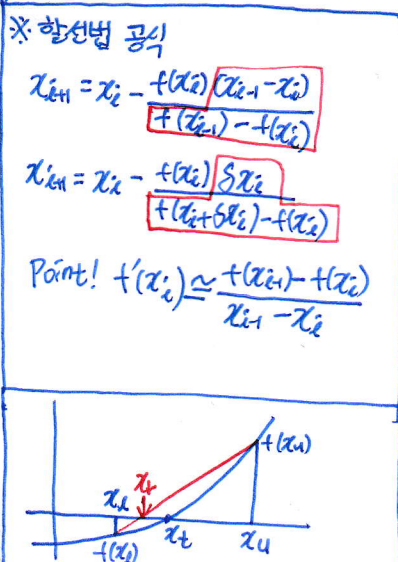 ※ 할선법 공식
xᵢ₊₁ = xᵢ - f(xᵢ)(xᵢ₋₁ - xᵢ) / f(xᵢ₋₁) - f(xᵢ)
xᵢ₊₁ = xᵢ - f(xᵢ) δxᵢ / f(xᵢ + δxᵢ) - f(xᵢ)
Point! f'(xᵢ) ≃ f(xᵢ₋₁) - f(xᵢ) / xᵢ₋₁ - xᵢ
f(xu)
xr
xl
f(xl)
xt
xu